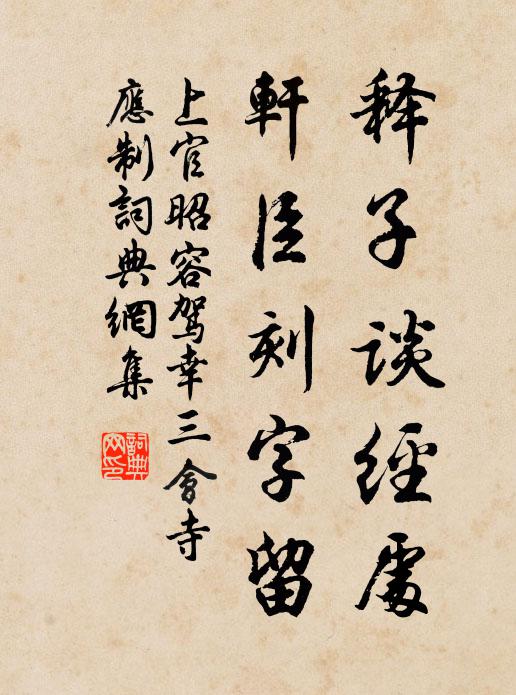 释子談經處
軒臣刻字留
上官昭容駕幸三會寺
應制詞典網集
詞典网印